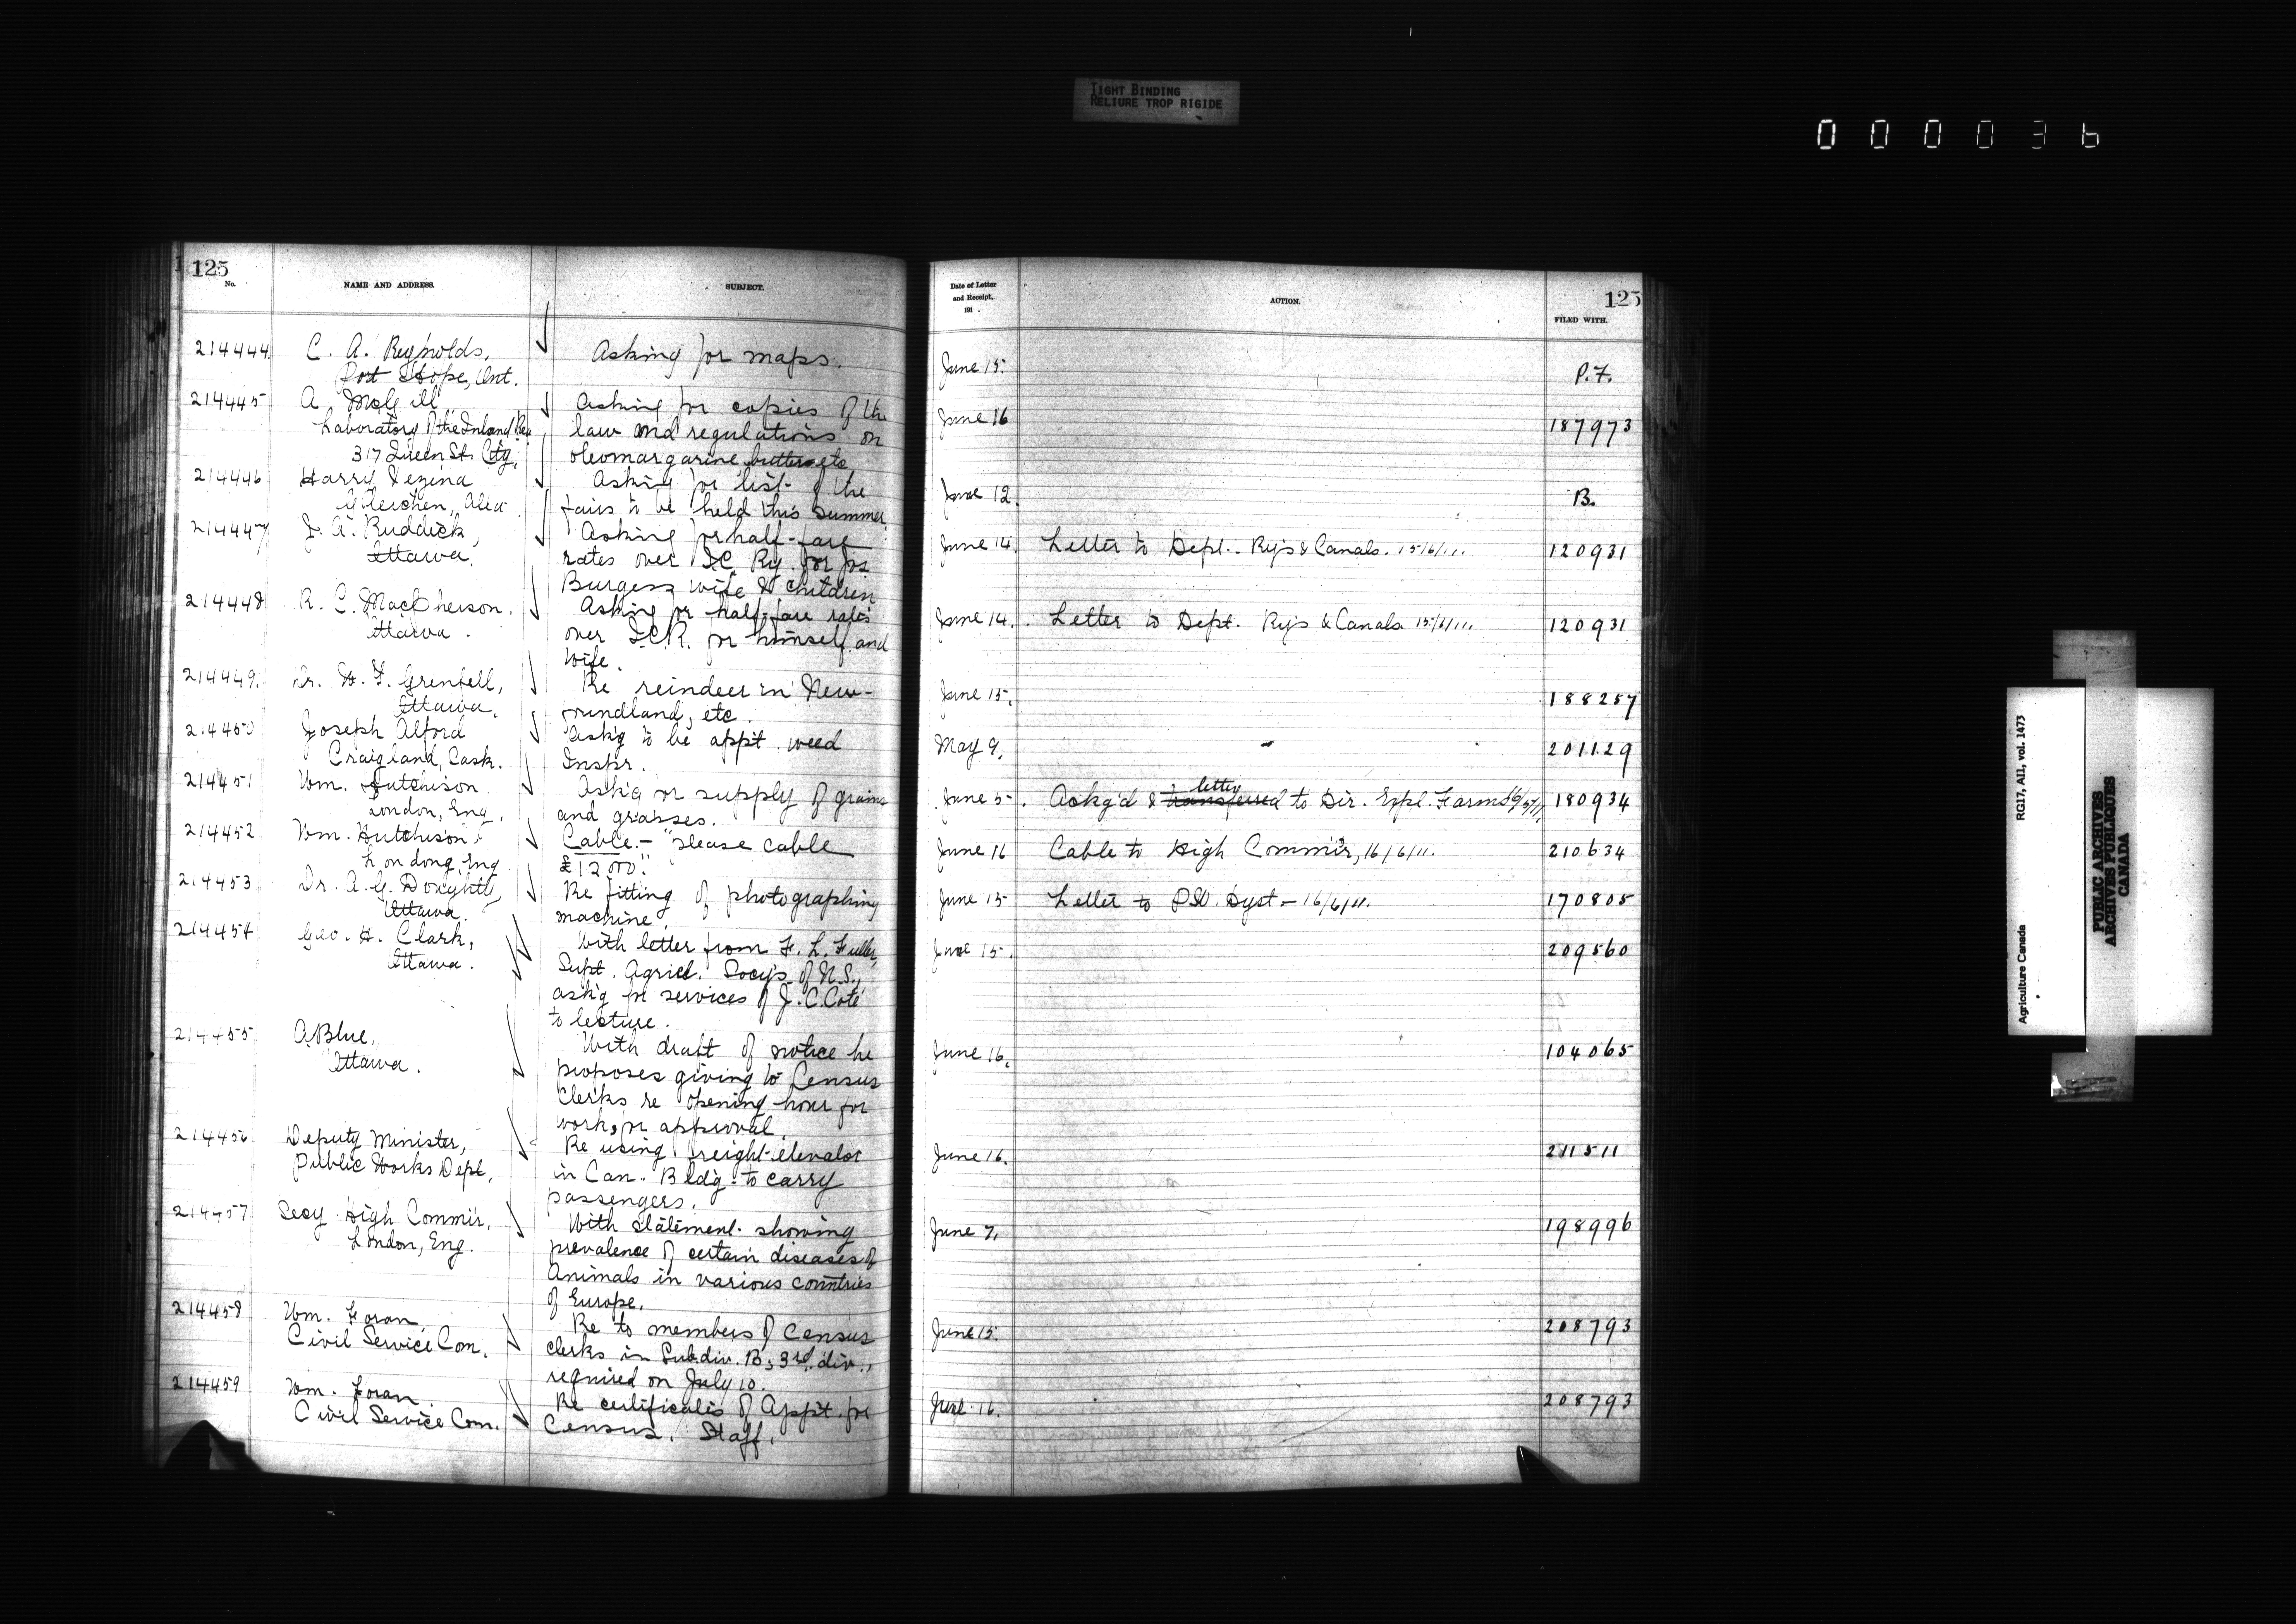 TIGHT BINDING
RELIURE TROP RIGIDE
000036
125
No.
NAME AND ADDRESS.
SUBJECT.
214444
C. A. Reynolds,
Port Hope, Ont.
Asking for maps.
214445
A. McGill
Laboratory of the Inland Rev
317 Queen St. City.
Asking for copies of the
law and regulations on
oleomargarine, butter etc
214446
Harry Vezina
Gleichen, Alta.
Asking for list of the
fairs to be held this summer.
214447
J. A. Ruddick,
Ottawa.
Asking for half-fare
rates over I.C. Ry. for Jas
Burgess wife & children
214448
R. C. MacPherson.
Ottawa.
Asking for half-fare rates
over I.C.R. for himself and
wife.
214449.
Dr. W. F. Grenfell,
Ottawa.
Re reindeer in New-
foundland, etc.
214450
Joseph Alford
Craigland, Sask.
Ask'g to be app't. weed
Inskr.
214451
Wm. Hutchison
London, Eng.
Ask'g for supply of grains
and grasses.
214452
Wm. Hutchison
London, Eng
Cable.- "please cable
£12000".
214453
Dr. A. G. Doughty,
Ottawa.
Re fitting of photographing
machine.
214454
Geo. H. Clark,
Ottawa.
With letter from F. L. Fuller,
Supt. Agricl. Socy's of N.S.,
ask'g for services of J. C. Coté
to lecture.
214455
A Blue,
Ottawa.
With draft of notice he
proposes giving to Census
Clerks re opening hour for
work, for approval.
214456
Deputy Minister,
Public Works Dept.
Re using freight-elevator
in Can. Bldg. to carry
passengers.
214457
Secy High Commir.
London, Eng.
With statement showing
prevalence of certain diseases of
Animals in various countries
of Europe.
214458
Wm. Foran,
Civil Service Com.
Re to members of Census
clerks in Subdiv. B, 3rd. div.,
required on July 10.
214459
Wm. Foran.
Civil Service Com.
Re certificates of App't. for
Census. Staff.
Date of Letter
and Receipt,
191 .
ACTION.
125
FILED WITH.
June 15.
P.F.
June 16
187973
June 12.
B.
June 14.
Letter to Dept. Ry's & Canals. 15/6/11.
120931
June 14.
Letter to Dept. Ry's & Canals 15/6/11.
120931
June 15.
188257
May 9.
201129
letter
June 5.
Ackg'd & transferred to Dir. Expl. Farms
180934
June 16
Cable to High Commir, 16/6/11.
210634
June 15
Letter to P.W. Dept - 16/6/11.
170805
June 15.
209560
June 16.
104065
June 16.
211511
June 7.
198996
June 15.
208793
June 16.
208793
Agriculture Canada
RG17, AII, vol. 1473
PUBLIC ARCHIVES
ARCHIVES PUBLIQUES
CANADA